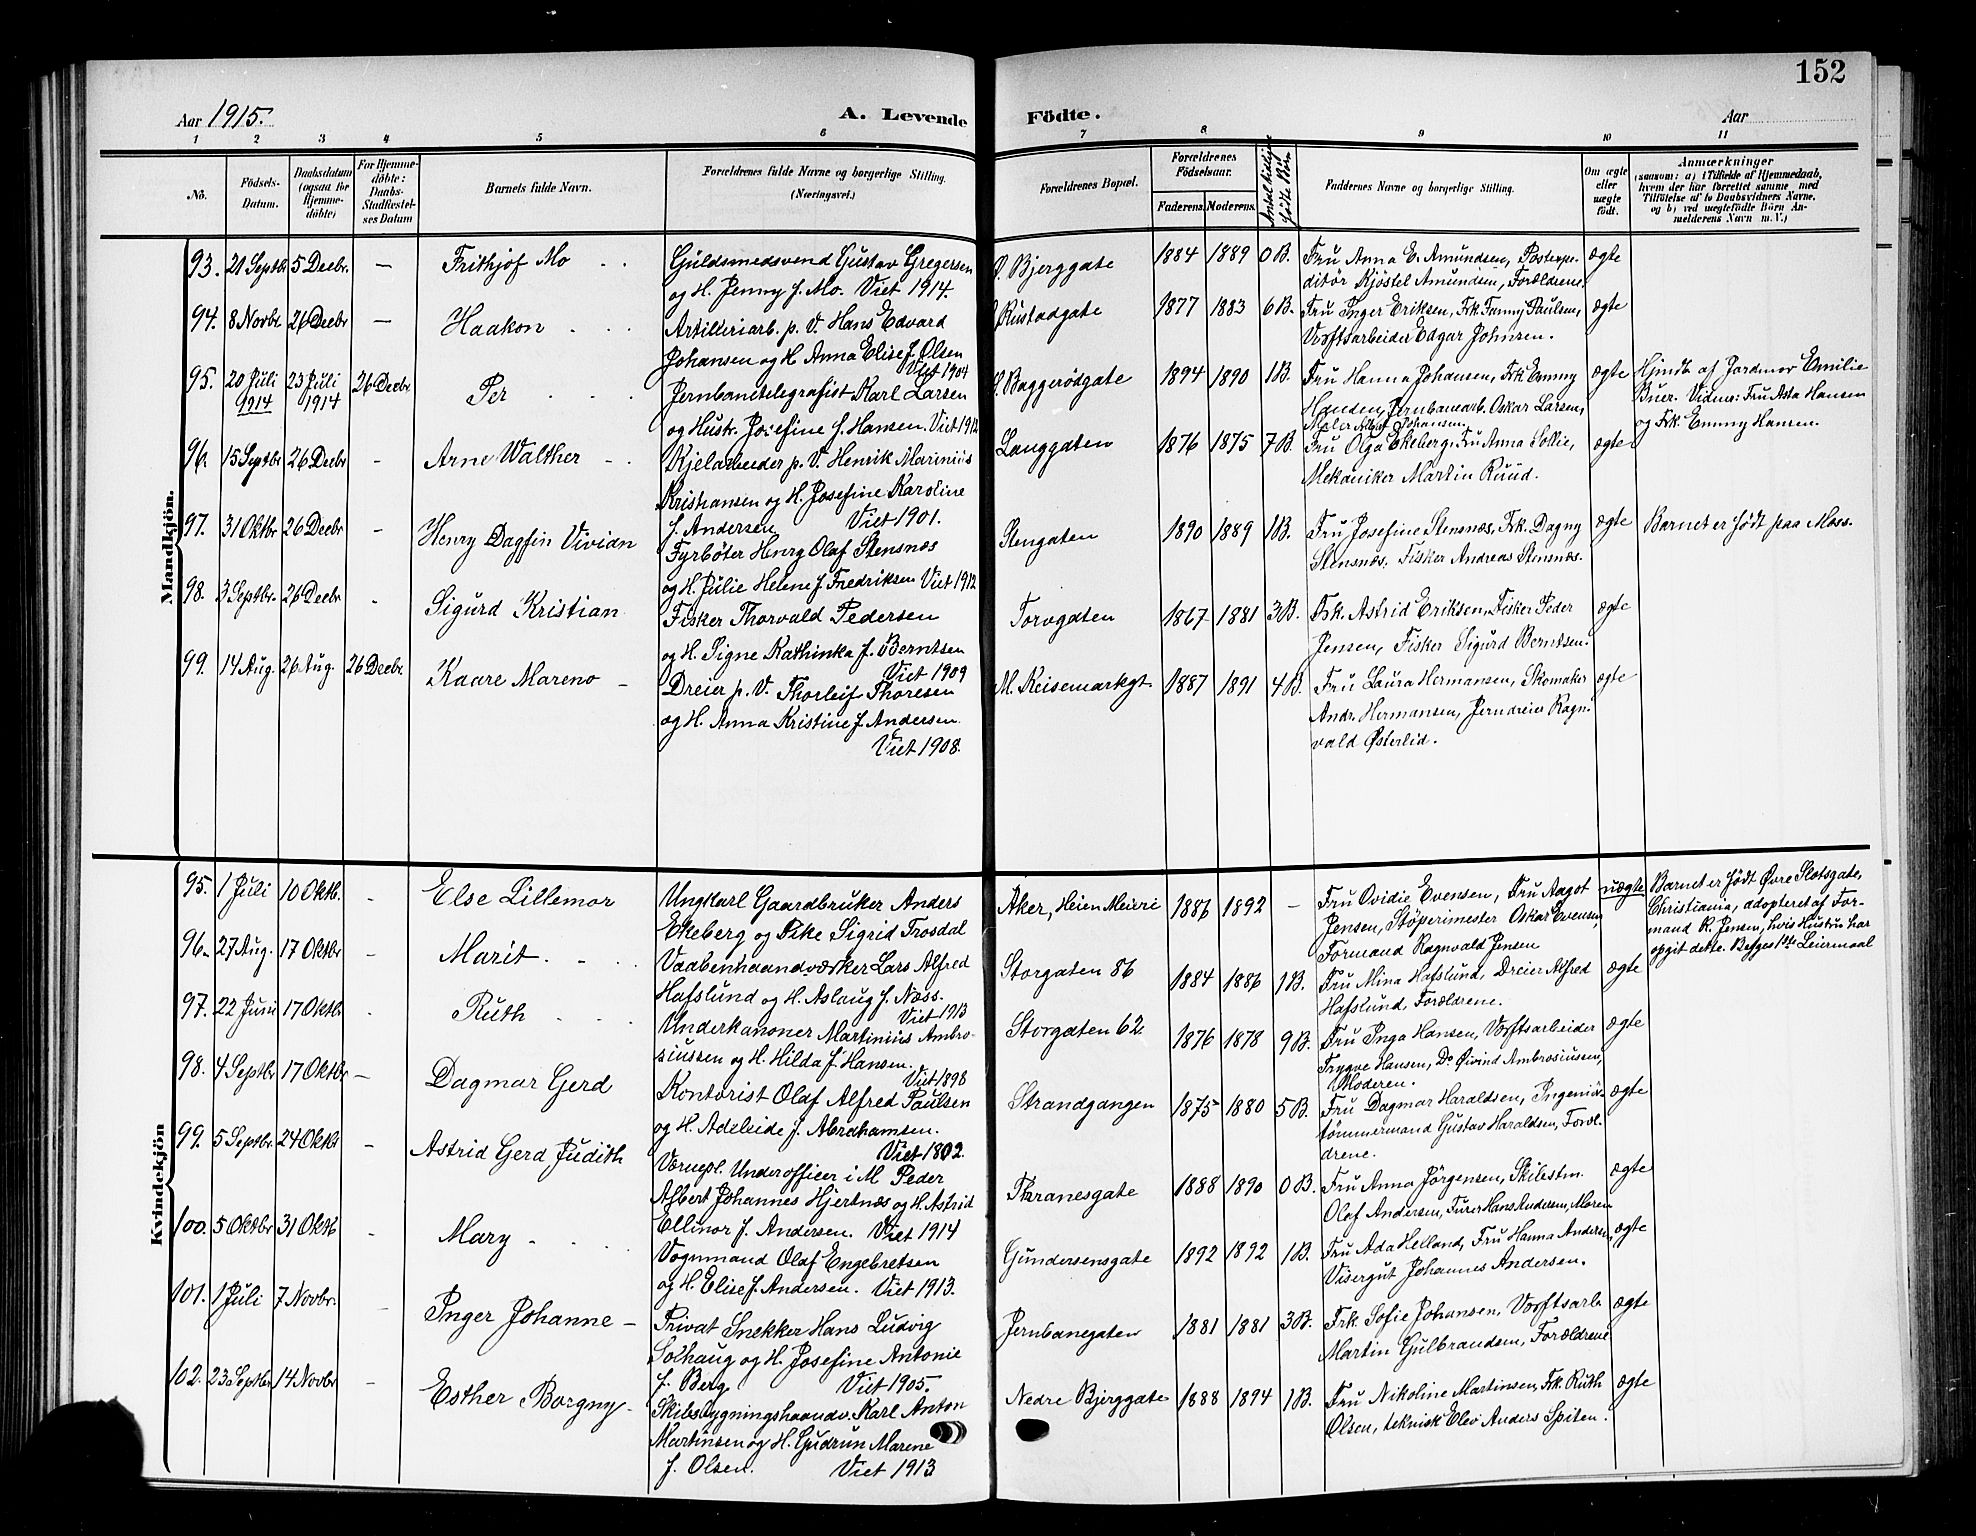 152
Aar 1915.
A. Levende Födte.
Aar
1 2 3 4 5 6 7 8 9 10 11
No.
Födsels-Datum.
Daabsdatum (ogsaa for Hjemmedöbte)
For Hjemmedöbte: Daabs-Stadfæstelses Datum
Barnets fulde Navn.
Forældrenes fulde Navne og borgerlige Stilling. (Næringsvei.)
Forældrenes Bopæl.
Forældrenes Födselsaar.
Faderens. Moderens.
Antal tidligere fødte Børn
Faddernes Navne og borgerlige Stilling.
Om ægte eller uægte födt.
Anmærkninger
(saasom: a) i Tilfælde af Hjemmedaab, hvem der har forrettet samme, med Tilföielse af to Daabsvidners Navne, og b) ved uægtefödte Börn Anmelderens Navn m. V.)
Mandkjön.
93. 21 Septbr 5 Decbr. — Frithjof Mo
Guldsmedsvend Gustav Gregersen
og H. Jenny f. Mo. Viet 1914.
Ø. Bjerggate 1884 1889 0 B.
Fru Anna E. Amundsen, Postexpe-
ditør Kjøstel Amundsen, Forældrene.
ægte
94. 8 Novbr 26 Decbr — Haakon
Artilleriarb. p. V. Hans Edvard
Johansen og H. Anna Elise f. Olsen
Viet 1904
Rustadgate 1877 1883 6 B.
Fru Inger Eriksen, Frk. Fanny Paulsen,
Værftsarbeider Edgar Johnsen.
ægte
95. 20 Juli 1914 23 Juli 1914 26 Decbr Per
Jernbanetelegrafist Karl Larsen
og Hustr. Josefine f. Hansen. Viet 1912
Ø. Baggerødgate 1894 1890 1 B.
Fru Hanna Johansen, Frk Emmy
Hansen, Jernbanearb. Oskar Larsen,
Maler Alfof Johansen
ægte
Hjmdt. af Jordmor Emilie
Buer. Vidner: Fru Asta Hansen
og Frk. Emmy Hansen.
96. 15 Septbr 26 Decbr - Arne Walther
Kjelarbeider p. V. Henrik Marinius
Kristiansen og H. Josefine Karoline
f. Andersen Viet 1901.
Langgaten 1876 1875 7 B.
Fru Olga Ekeberg, Fru Anna Sollie,
Mekaniker Martin Ruud.
ægte
97. 31 Oktbr 26 Decbr - Henry Dagfin Vivian
Fyrbøter Henry Olaf Stensnæs
og H. Julie Helene f. Fredriksen Viet 1912
Stengaten 1890 1889 1 B.
Fru Josefine Stensnæs, Frk. Dagny
Stensnæs, Fisker Andreas Stensnæs.
ægte
Barnet er født paa Moss.
98. 3 Septbr. 26 Decbr - Sigurd Kristian
Fisker Thorvald Pedersen
og H. Signe Kathinka f. Berntsen
Viet 1909
Torvgaten 1867 1881 3 B.
Frk. Astrid Eriksen, Fisker Peder
Jensen, Fisker Sigurd Berntsen.
ægte
99. 14 Aug. 26 Aug. 26 Decbr. Kaare Mareno
Dreier p. V. Thorleif Thoresen
og H. Anna Kristine f. Andersen.
Viet 1908.
M. Keisemarkgt 1887 1891 4 B.
Fru Laura Hermansen, Skomaker
Andr. Hermansen, Jerndreier Ragn-
vald Østerlid.
ægte
Kvindekjön
95. 1 Juli 10 Oktb. - Else Lillemor
Ungkarl Gaardbruker Anders
Ekeberg og Pike Sigrid Trosdal
Aker, Heien Meieri 1886 1892 —
Fru Ovidie Evensen, Fru Aagot
Jensen, Støperimester Oskar Evensen,
Formand Ragnvald Jensen
uægte
Barnet er født Øvre Slotsgate,
Christiania, adopteret af For-
mand R. Jensen, hvis Hustru har
opgit dette. Begges 1ste Leiermaal
96. 27 Aug. 17 Oktbr - Marit
Vaabenhaandværker Lars Alfred
Hafslund og H. Aslaug f. Næss.
Viet 1913
Storgaten 86 1884 1886 1 B.
Fru Mina Hafslund, Dreier Alfred
Hafslund, Forældrene.
ægte
97. 22 Juni 17 Oktbr. Ruth
Underkanoner Martinius Ambro-
siussen og H. Hilda f. Hansen.
Viet 1898
Storgaten 62 1876 1878 9 B.
Fru Inga Hansen, Værftsarbeider
Trygve Hansen, Do Øivind Ambrosiussen,
Moderen.
ægte
98. 4 Septbr 17 Oktbr — Dagmar Gerd
Kontorist Olaf Alfred Paulsen
og H. Adeleide f. Abrahamsen.
Viet 1802.
Strandgangen 1875 1880 5 B.
Fru Dagmar Haraldsen, Ingeniør-
tømmermand Gustav Haraldsen, Foræl-
drene.
ægte
99. 5 Septbr 24 Oktbr - Astrid Gerd Judith
Værnepl. Underofficer i M. Peder
Albert Johannes Hjertnæs og H. Astrid
Ellinor f. Andersen. Viet 1914
Thranesgate 1888 1890 0 B.
Fru Anna Jørgensen, Skibstm.
Olaf Andersen, Furer Hans Andersen, Moren
ægte
100. 5 Oktbr 31 Oktb - Mary
Vognmand Olaf Engebretsen
og H. Elise f. Andersen. Viet 1913.
Gundersensgate 1892 1892 1 B.
Fru Ada Helland, Fru Hanna Andersen,
Visergut Johannes Andersen.
ægte
101. 1 Juli 7 Novbr. - Inger Johanne
Privat Snekker Hans Ludvig
Solhaug og H. Josefine Antonie
f. Berg Viet 1905.
Jernbanegaten 1881 1881 3 B.
Frk Sofie Johansen, Værftsarb.
Martin Gulbrandsen, Forældrene
ægte
102. 23 Septbr 14 Novbr - Esther Borgny
Skibsbygningshaandv. Karl Anton
Martinsen og H. Gudrun Marene
f. Olsen. Viet 1913
Nedre Bjerggate 1888 1894 1 B.
Fru Nikoline Martinsen, Frk. Ruth
Olsen, teknisk Elev Anders Spiten.
ægte